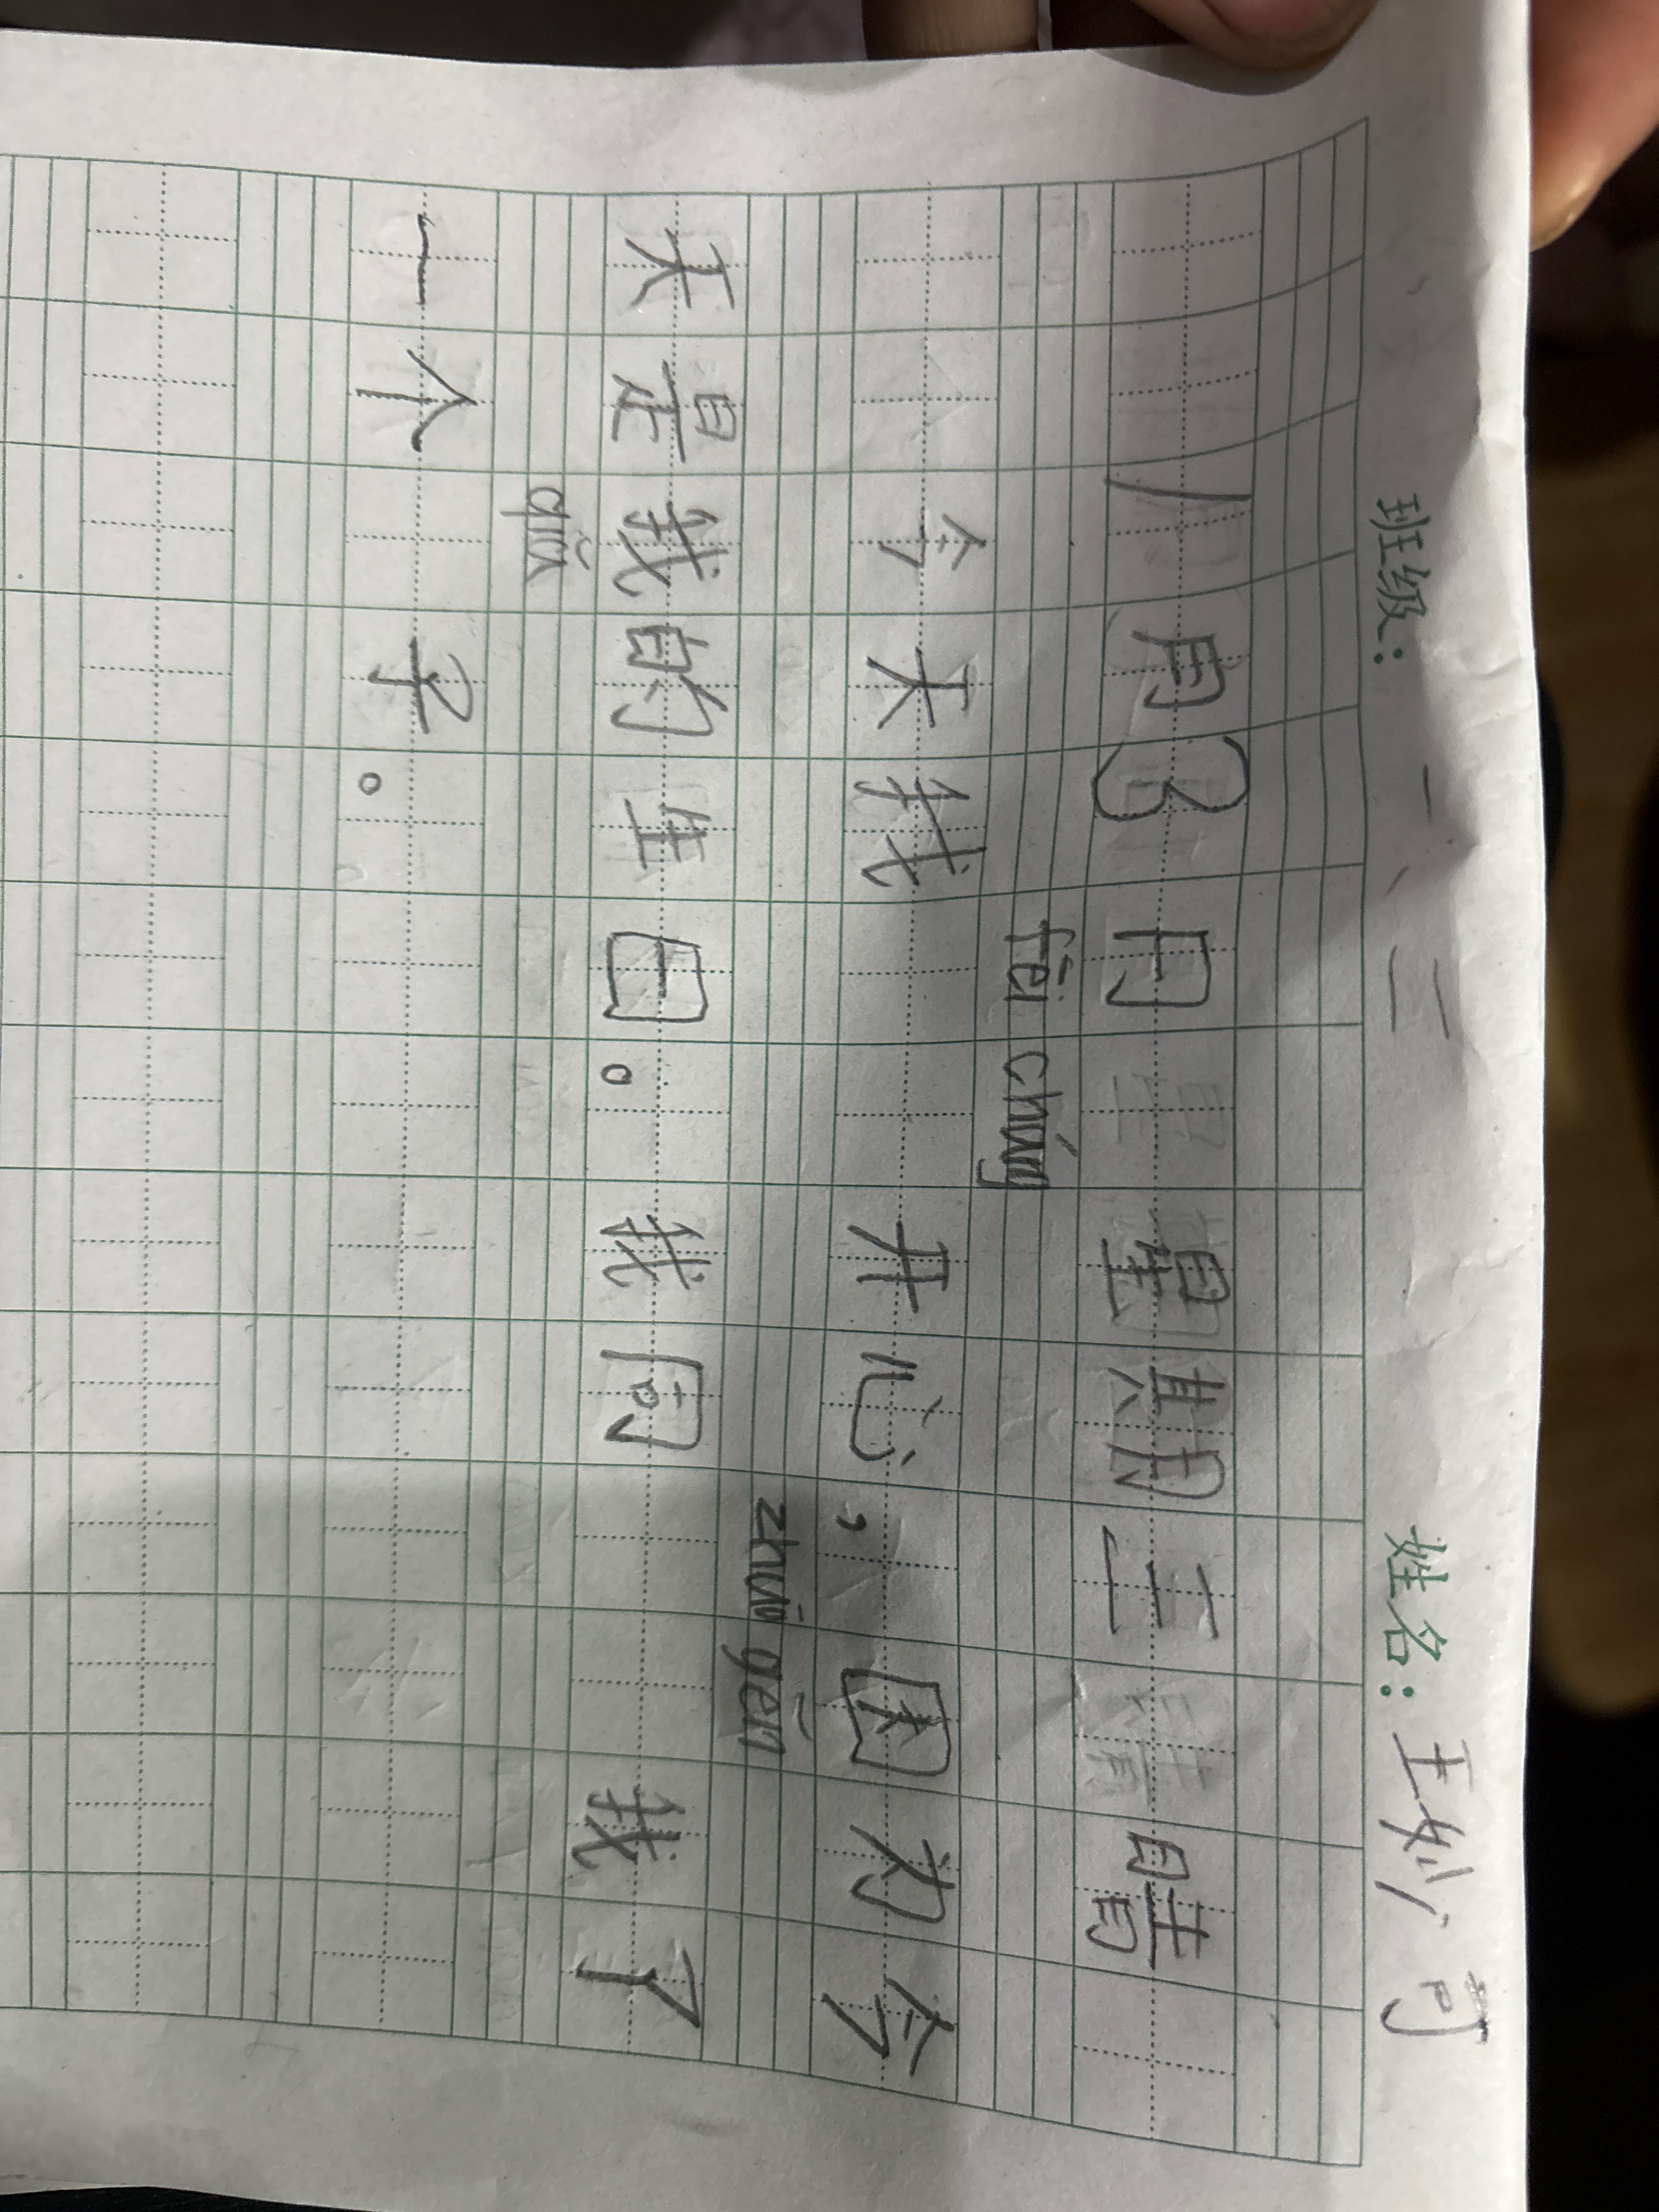 班级：一、二 姓名：王妙可
1月3日 星期二 晴
fēi cháng
今天我 开心，因为今
zhuō gēn
天是我的生日。我向 我了
qún
一个 子。